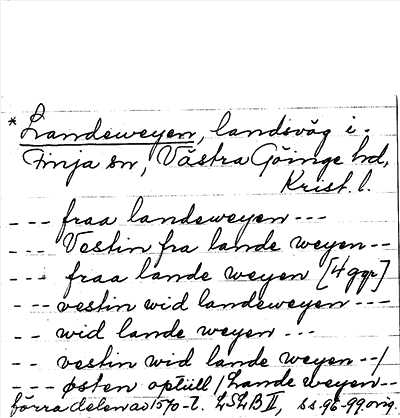 *Landeweyen, landsväg i
Finja sn, Västra Göinge hd,
Krist. l.
--- fraa landeweyen ---
-- Vestin fra lande weyen --
--- fraa lande weyen [4 ggr]
--- vestin wid landeweyen ---
-- wid lande weyen ---
-- vestin wid lande weyen --/
--- østen optill / Lande weyen --
förra delen av 1570-t. LSLB II, ss. 96-99 orig.